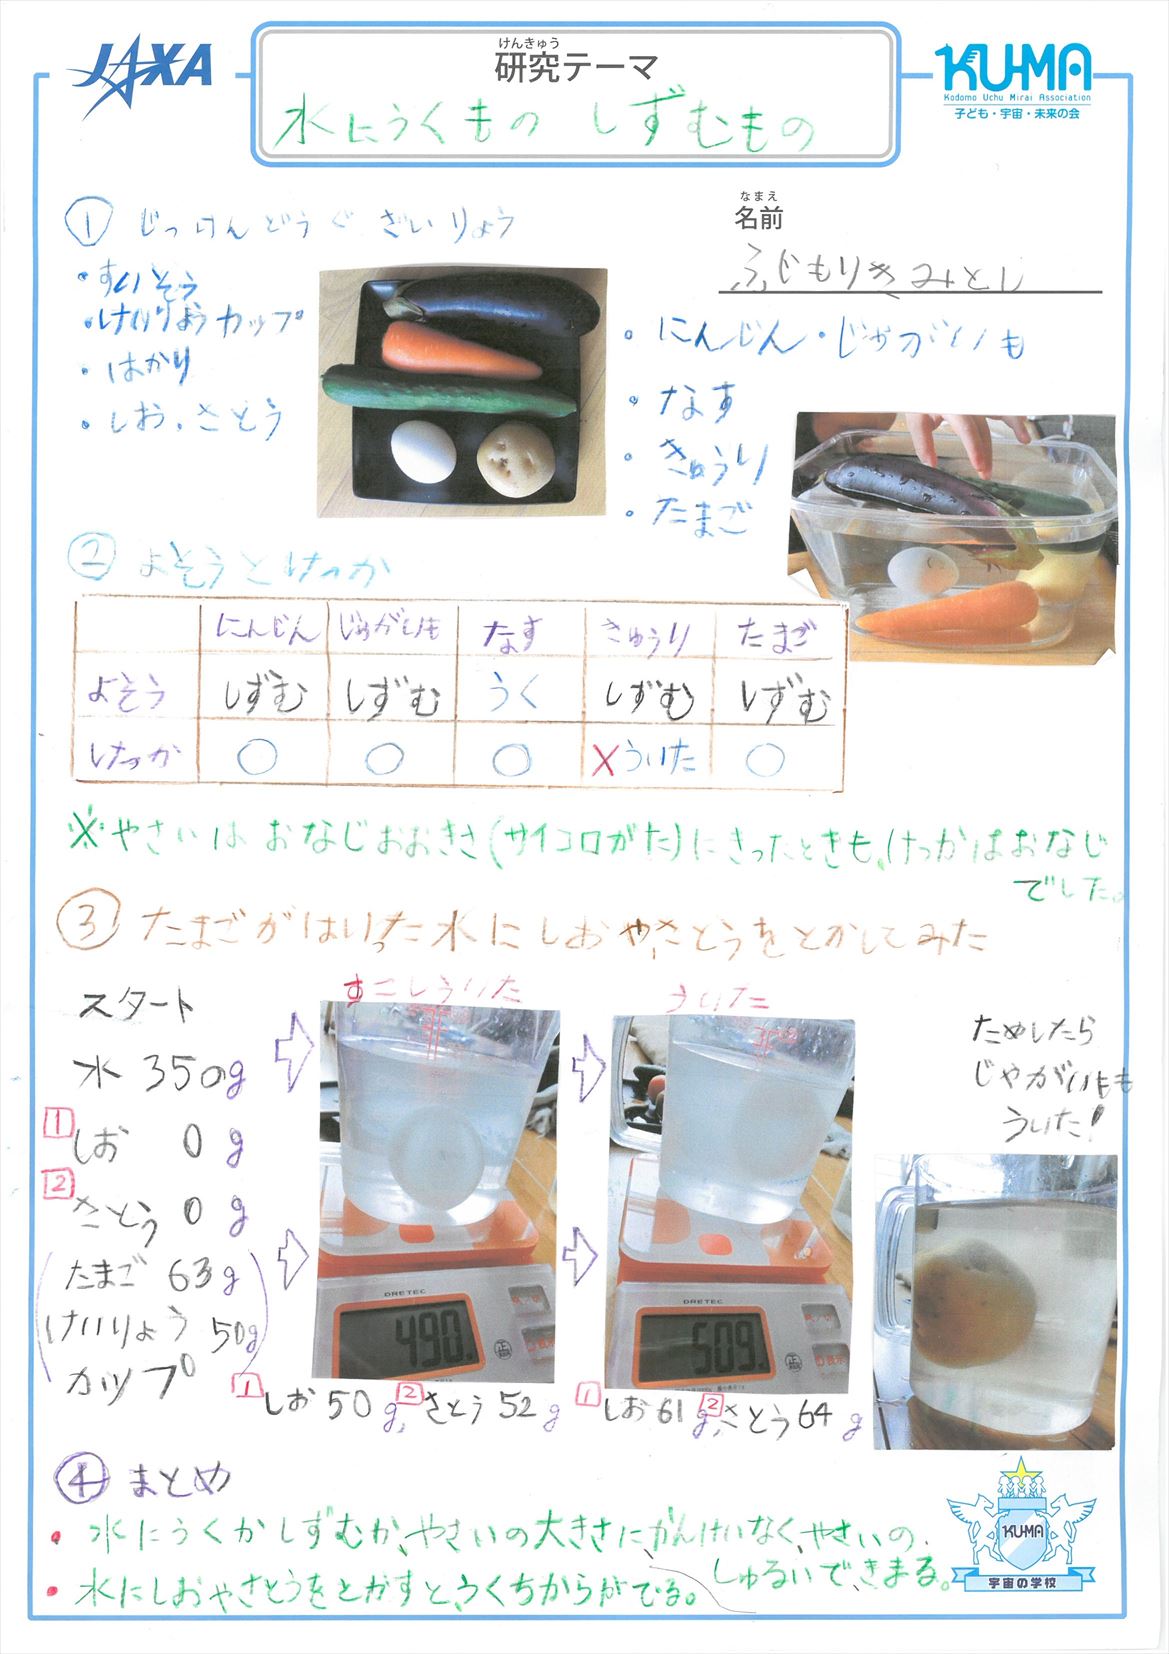 JAXA
けんきゅう
研究テーマ
水にうくもの しずむもの
KU-MA
Kodomo Uchu Mirai Association
子ども・宇宙・未来の会
なまえ
名前
ふじもりきみとし
① じっけんどうぐ ざいりょう
・すいそう
・けいりょうカップ
・はかり
・しお、さとう
・にんじん・じゃがいも
・なす
・きゅうり
・たまご
② よそうとけっか
にんじん じゃがいも なす きゅうり たまご
よそう しずむ しずむ うく しずむ しずむ
けっか ○ ○ ○ ×ういた ○
※やさいは おなじおおきさ(サイコロがた)にきったときも、けっかはおなじ
でした。
③ たまごがはいった水にしおや、さとうをとかしてみた
スタート
水 350g
1 しお 0g
2 さとう 0g
(たまご 63g
けいりょう 50g
カップ)
すこしういた
DRETEC
490.
1 しお 50g, 2 さとう 52g
ういた
DRETEC
509.
1 しお 61g, 2 さとう 64g
ためしたら
じゃがいもも
ういた!
④ まとめ
・水にうくかしずむか、やさいの大きさにかんけいなく、やさいの
しゅるいで、きまる。
・水にしおやさとうをとかすと、うくちからがでる。
KU-MA
宇宙の学校